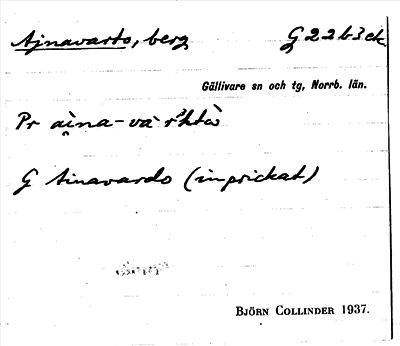 Ajnavarto, berg G 22 b 3 ck
Gällivare sn och tg, Norrb. län.
Pr ai̯na-vàrhtò
G Ainavardo (inprickat)
BJÖRN COLLINDER 1937.